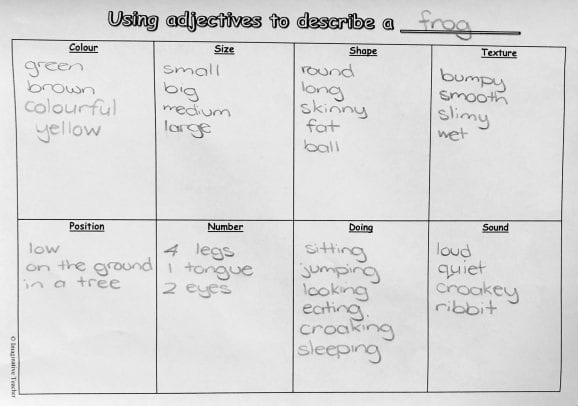 Using adjectives to describe a frog
Colour
green
brown
colourful
yellow
Size
small
big
medium
large
Shape
round
long
skinny
fat
ball
Texture
bumpy
smooth
slimy
wet
Position
low
on the ground
in a tree
Number
4 legs
1 tongue
2 eyes
Doing
sitting
jumping
looking
eating.
croaking
sleeping
Sound
loud
quiet
croakey
ribbit
© Imaginative Teacher